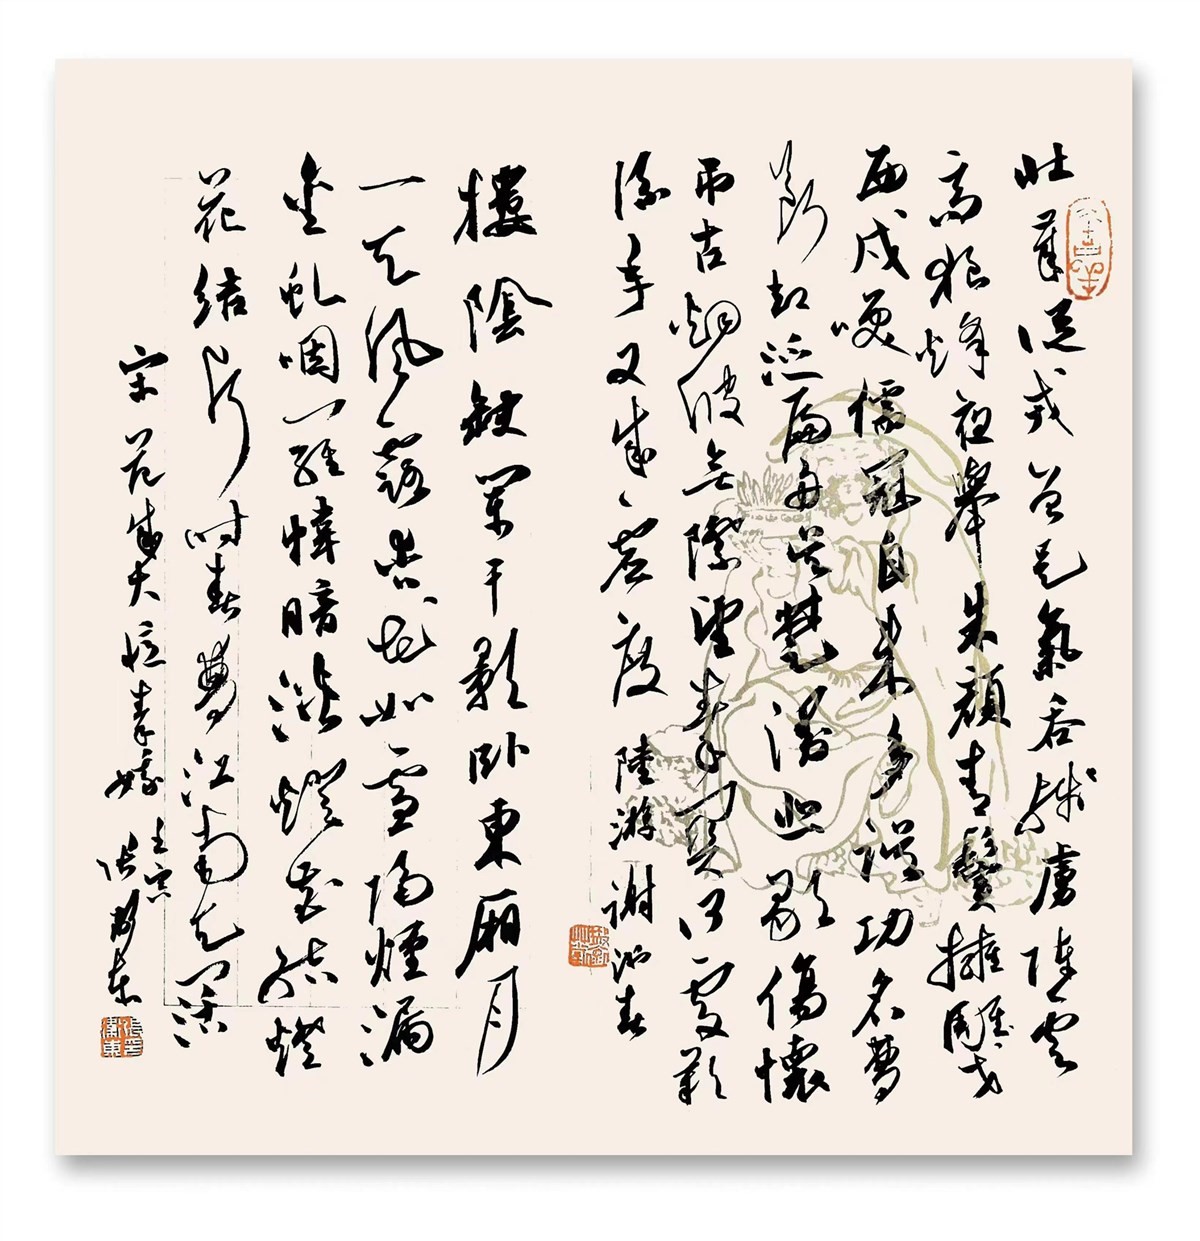 壯歲從戎曾是氣吞殘虜陣雲
高狼烽夜舉朱顏青鬢擁雕戈
西戍咲儒冠自來多誤功名夢
斷却泛扁舟吳楚漫悲歌傷懷
吊古烟波無際望秦關何處歎
流年又成虛度 陸游謝池春
樓陰缺闌干影臥東廂月
一天風露杏花如雪隔煙漏
金虬咽羅幃暗淡燈花結燈
花結片時春夢江南天闊
宋范成大憶秦娥
壬寅
張衛東